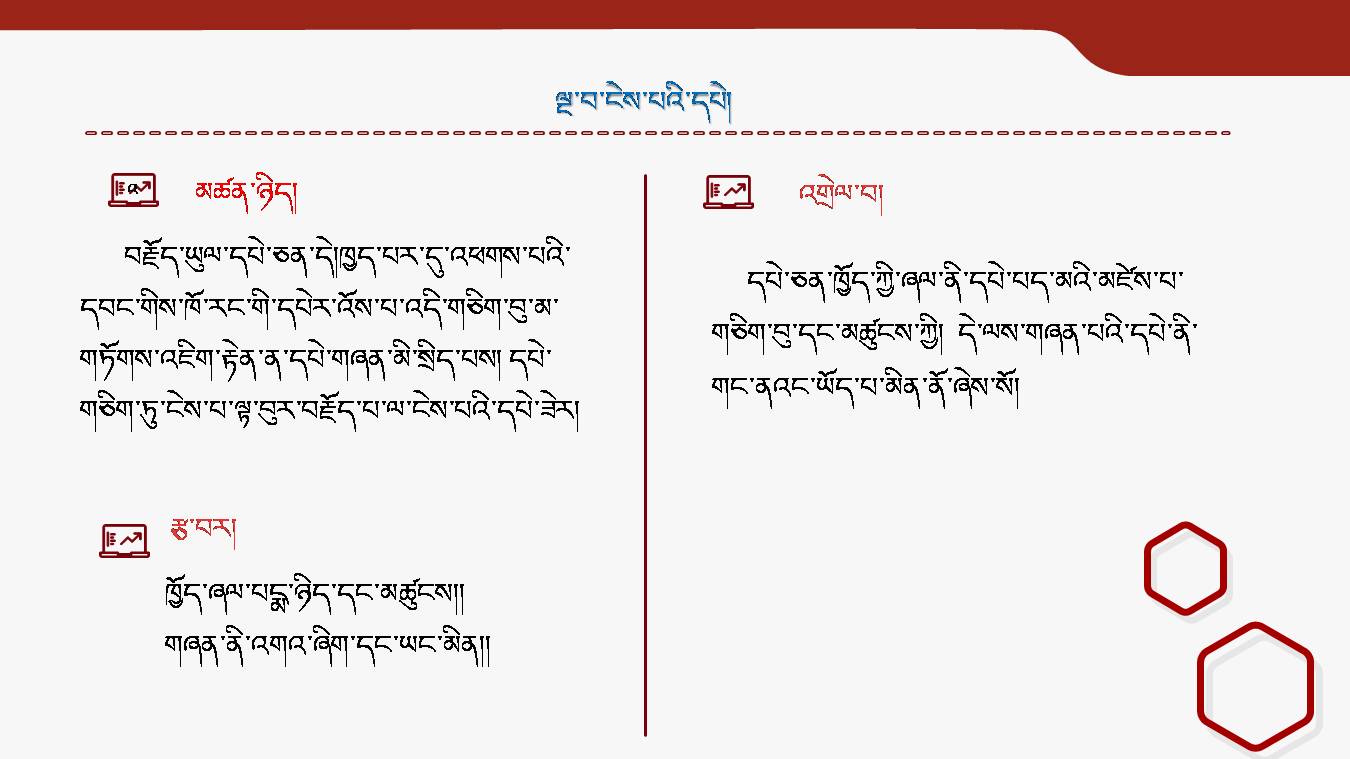 ལྔ་བ་ངེས་པའི་དཔེ།
མཚན་ཉིད།
བརྗོད་ཡུལ་དཔེ་ཅན་དེ།ཁྱད་པར་དུ་འཕགས་པའི་
དབང་གིས་ཁོ་རང་གི་དཔེར་འོས་པ་འདི་གཅིག་བུ་མ་
གཏོགས་འཇིག་རྟེན་ན་དཔེ་གཞན་མི་སྲིད་པས། དཔེ་
གཅིག་ཏུ་ངེས་པ་ལྟ་བུར་བརྗོད་པ་ལ་ངེས་པའི་དཔེ་ཟེར།
རྩ་བར།
ཁྱོད་ཞལ་པདྨ་ཉིད་དང་མཚུངས།།
གཞན་ནི་འགའ་ཞིག་དང་ཡང་མིན།།
འགྲེལ་བ།
དཔེ་ཅན་ཁྱོད་ཀྱི་ཞལ་ནི་དཔེ་པད་མའི་མཛེས་པ་
གཅིག་བུ་དང་མཚུངས་ཀྱི། དེ་ལས་གཞན་པའི་དཔེ་ནི་
གང་ནའང་ཡོད་པ་མིན་ནོ་ཞེས་སོ།